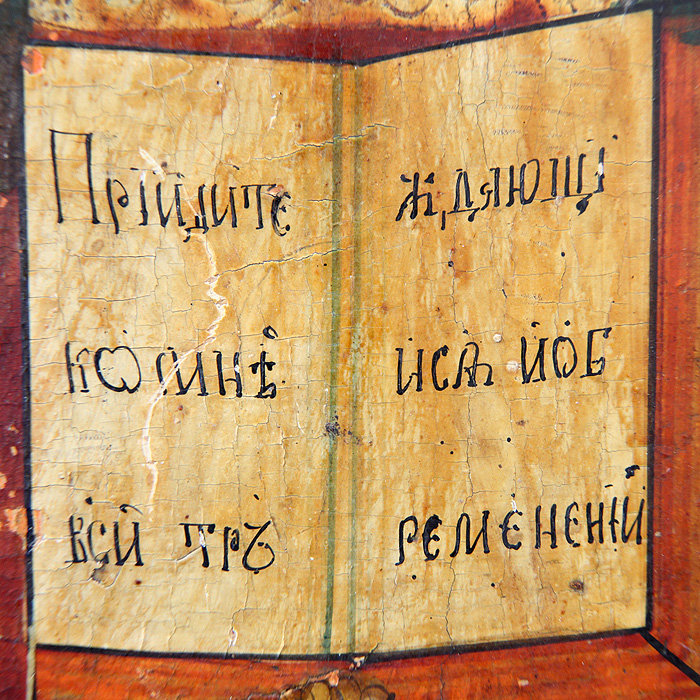 Прїйдите
ко мнѣ
вси трꙋ
ждающї
исѧ й об
ременений